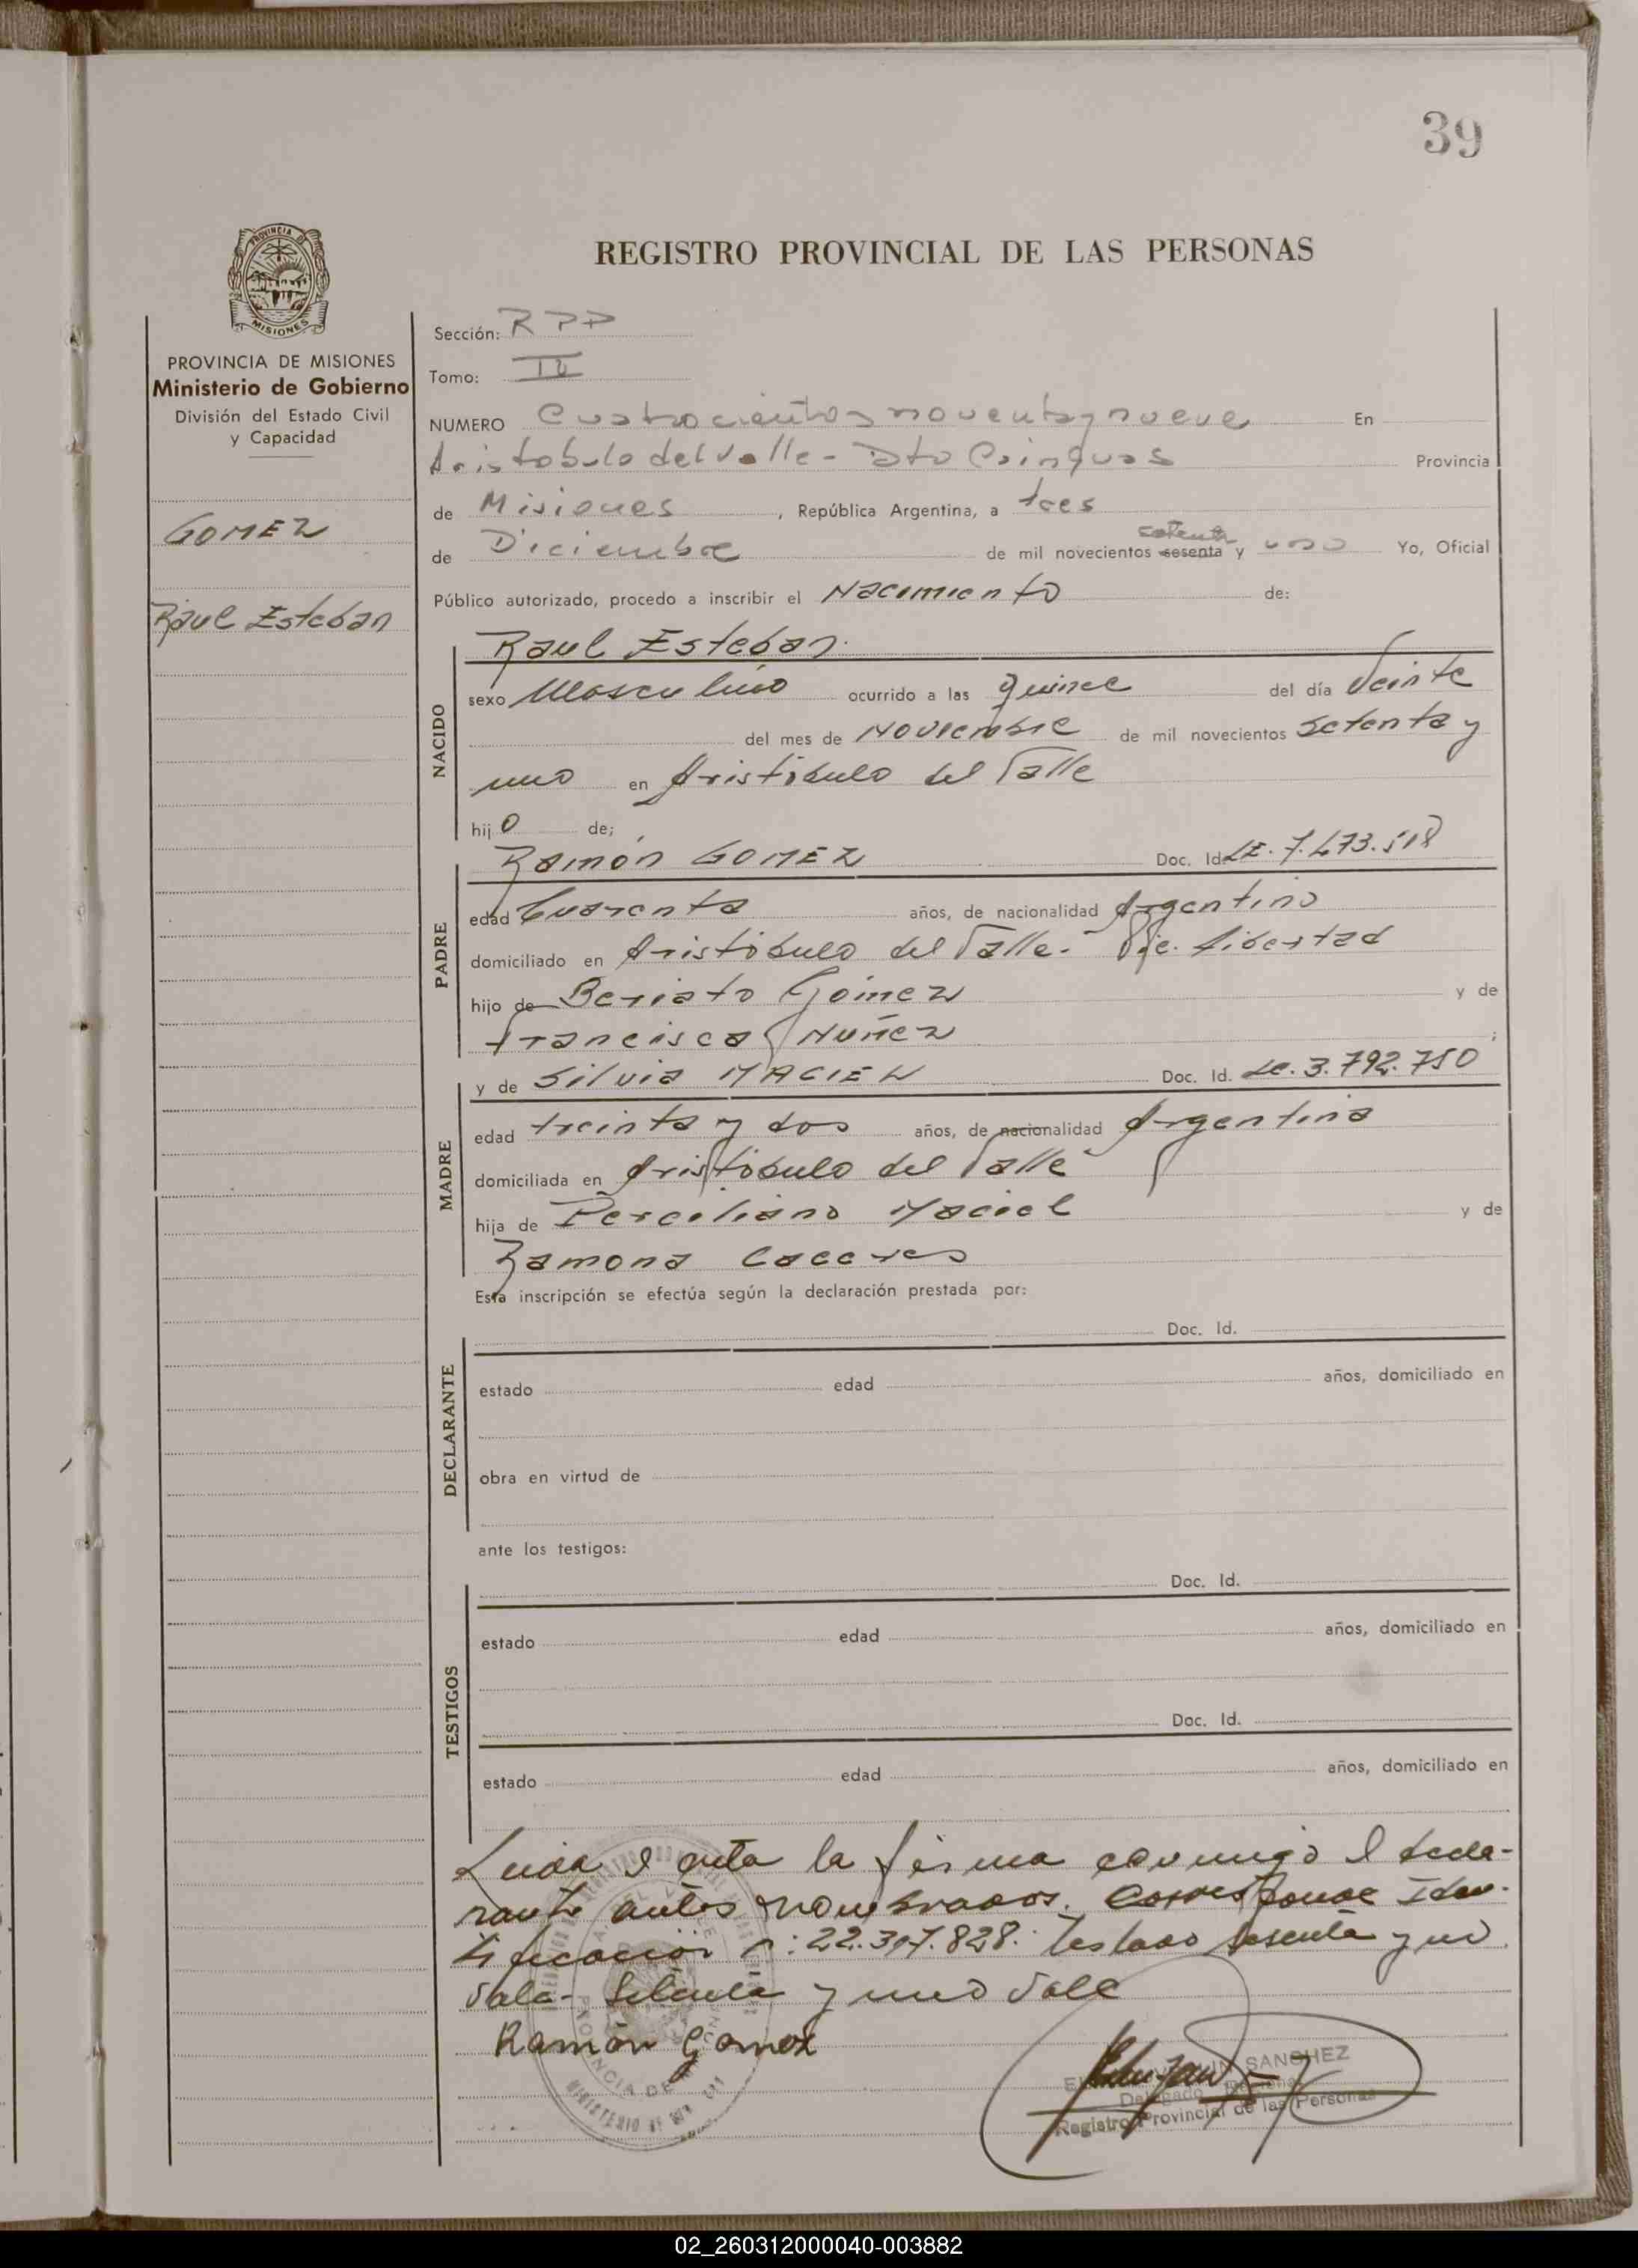 39
PROVINCIA DE MISIONES
REGISTRO PROVINCIAL DE LAS PERSONAS
PROVINCIA DE MISIONES
Ministerio de Gobierno
División del Estado Civil
y Capacidad
GOMEZ
Raul Esteban
Sección: RPP
Tomo:
NUMERO Cuatrocientos noventa y nueve En
Aristobulo del Valle - Dto Cainguas Provincia
de Misiones, República Argentina, a tres
setenta
de Diciembre de mil novecientos sesenta y uno Yo, Oficial
Público autorizado, procedo a inscribir el Nacimiento de:
NACIDO
Raul Esteban
sexo Masculino ocurrido a las quince del día Veinte
del mes de Noviembre de mil novecientos setenta y
uno en Aristóbulo del Valle
hijo de;
PADRE
Ramón GOMEZ Doc. Id. LE. 7.473.518
edad Cuarenta años, de nacionalidad Argentino
domiciliado en Aristóbulo del Valle. Pje. Libertad
hijo de Gómez y de
Francisca Nuñez;
MADRE
y de Silvia MACIEL Doc. Id. LC. 3.792.750
edad treinta y dos años, de nacionalidad Argentina
domiciliada en Aristóbulo del Valle
hija de Perciliano Maciel y de
Ramona Caceres
Esta inscripción se efectúa según la declaración prestada por:
DECLARANTE
Doc. Id.
estado edad años, domiciliado en
obra en virtud de
ante los testigos:
TESTIGOS
Doc. Id.
estado edad años, domiciliado en
Doc. Id.
estado edad años, domiciliado en
Leida el acta la firma conmigo el decla-
rante antes nombrados. Corresponde Iden-
tificación n: 22.307.828. Testado sesenta y no
vale- Setenta y uno Vale
Ramón Gomez
SANCHEZ
Delegado
Registro Provincial de las Personas
02_260312000040-003882